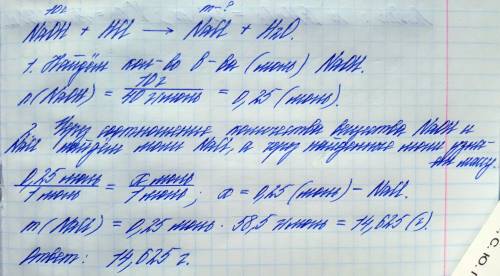 10г m-?
NaOH + HCl → NaCl + H2O.
1. Найдём кол-во в-ва (моль) NaOH.
n(NaOH) = 10 г / 40 г/моль = 0,25 (моль).
2. Через соотношение количества вещества NaOH и
NaCl найдём моли NaCl, а через найденные моли
массу.
0,25 моль / 1 моль = x моль / 1 моль; x = 0,25 (моль) - NaCl.
m(NaCl) = 0,25 моль · 58,5 г/моль = 14,625 (г).
Ответ: 14,625 г.